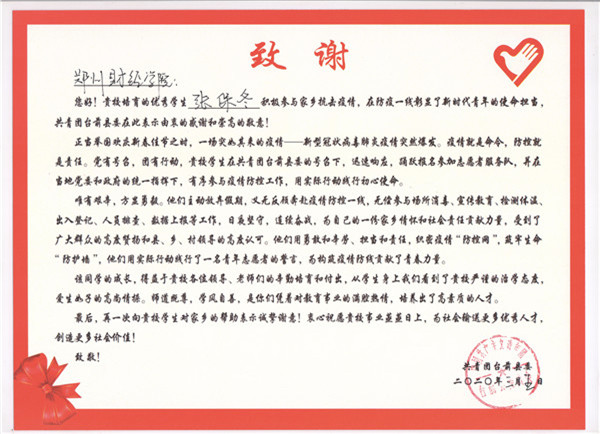 致谢
郑州财经学院:
您好!贵校培育的优秀学生张珠冬积极参与家乡抗击疫情,在防疫一线彰显了新时代青年的使命担当,
共青团台前县委在此表示由衷的感谢和崇高的敬意!
正当举国欢庆新春佳节之时,一场突如其来的疫情——新型冠状病毒肺炎疫情突然爆发。疫情就是命令,防控就
是责任。党有号召,团有行动,贵校学生在共青团台前县委的号召下,迅速响应,踊跃报名参加志愿者服务队,并在
当地党委和政府的统一指挥下,有序参与疫情防控工作,用实际行动践行初心使命。
唯有艰辛,方显勇毅。他们主动放弃假期,义无反顾奔赴疫情防控一线,无偿参与场所消毒、宣传教育、检测体温、
出入登记、人员排查、数据上报等工作,日夜坚守,连续奋战,为自己的一份家乡情怀和社会责任贡献力量,受到了
广大群众的高度赞扬和县、乡、村领导的高度认可。他们用勇敢和辛劳、担当和责任,织密疫情“防控网”,筑牢生命
“防护墙”,他们用实际行动践行了一名青年志愿者的誓言,为构筑疫情防线贡献了青春力量。
该同学的成长,得益于贵校各位领导、老师们的辛勤培育和付出,从学生身上我们看到了贵校严谨的治学态度,
爱生如子的高尚情操。师道既尊,学风自善,是你们凭着对教育事业的满腔热情,培养出了高素质的人才。
最后,再一次向贵校学生对家乡的帮助表示诚挚谢意!衷心祝愿贵校事业蒸蒸日上,为社会输送更多优秀人才,
创造更多社会价值!
致敬!
共青团台前县委
二〇二〇年二月 日